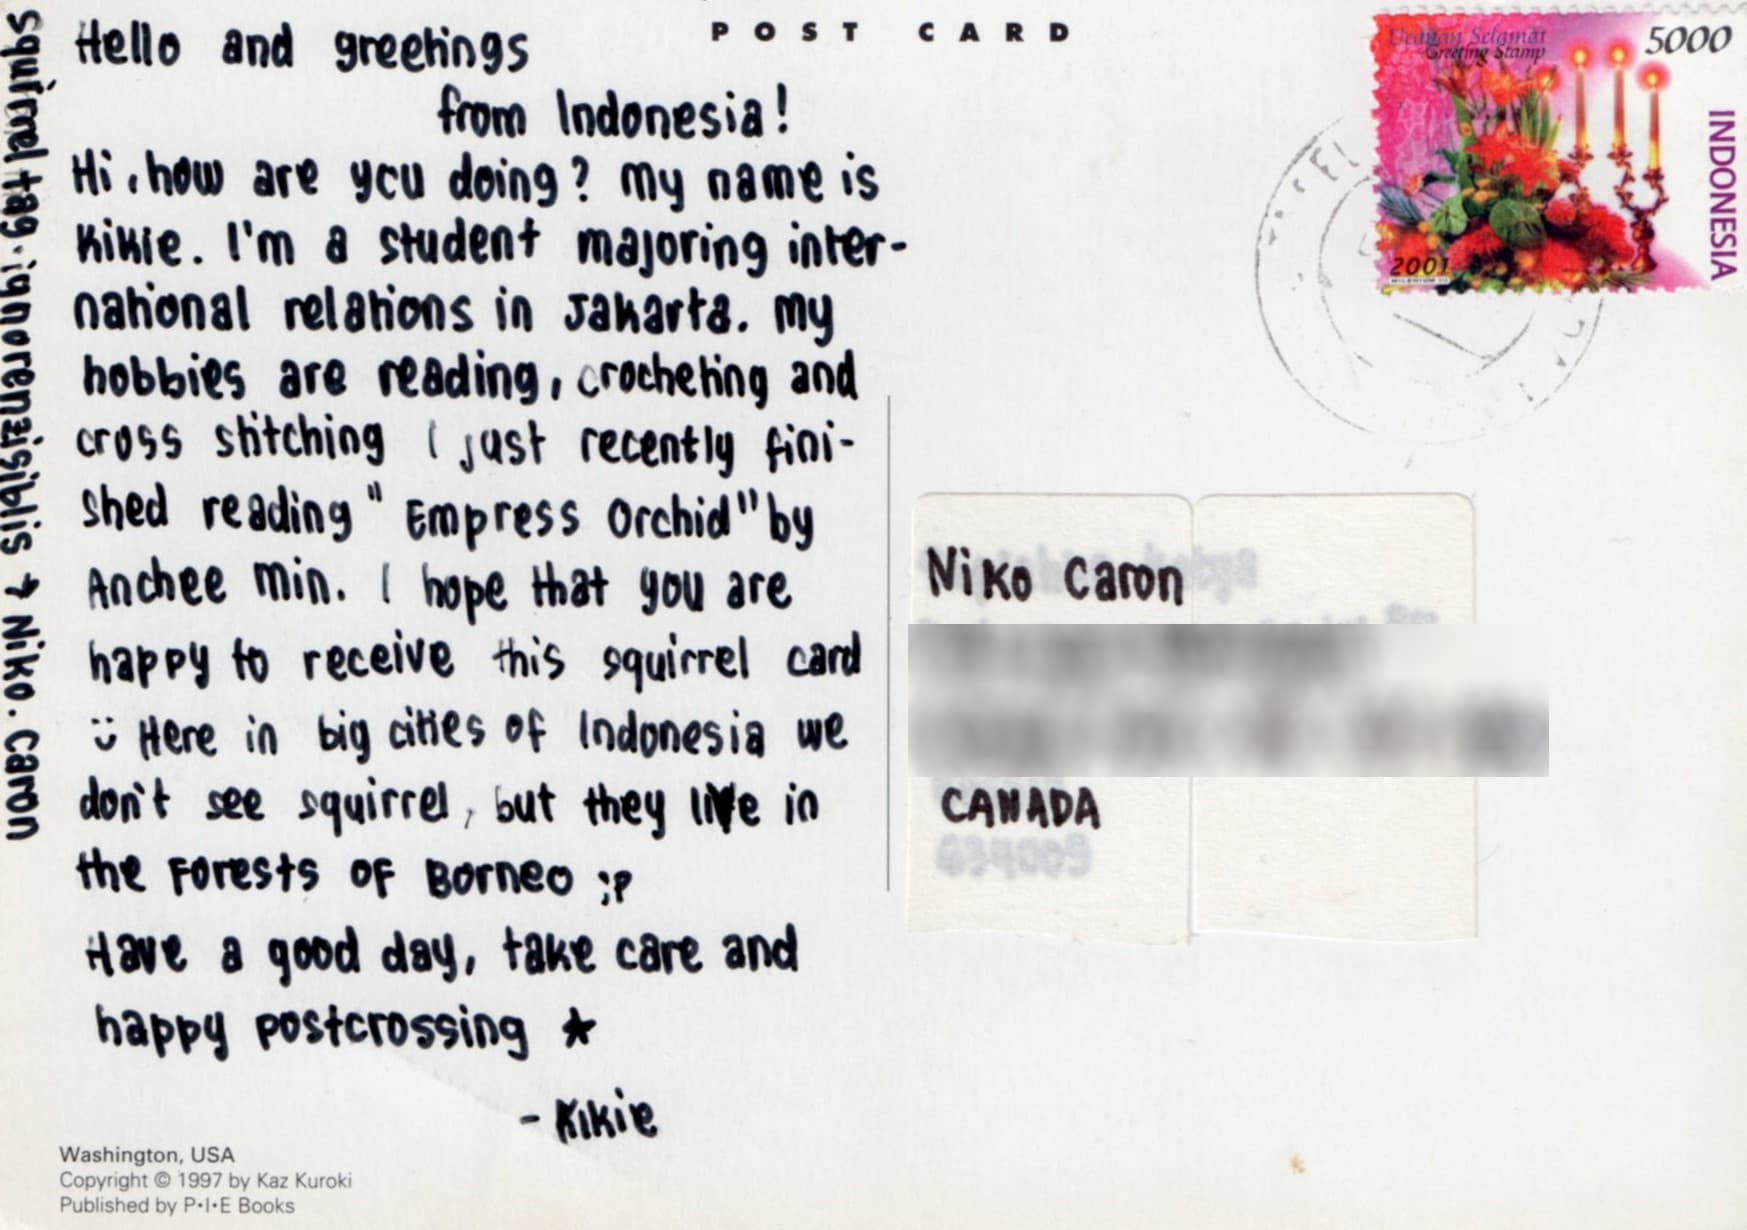 POST CARD
Hello and greetings
from Indonesia!
Hi, how are you doing? My name is
Kikie. I'm a student majoring inter-
national relations in Jakarta. My
hobbies are reading, crocheting and
cross stitching I just recently fini-
shed reading "Empress Orchid" by
Anchee Min. I hope that you are
happy to receive this squirrel card
:) Here in big cities of Indonesia we
don't see squirrel, but they live in
the Forests of Borneo ;P
Have a good day, take care and
happy postcrossing ★
- Kikie
squirrel tag. ignorenzisiblis → Niko. Caron
Washington, USA
Copyright © 1997 by Kaz Kuroki
Published by P·I·E Books
Ucapan Selamat
Greeting Stamp
5000
INDONESIA
2001
Niko Caron
CANADA
634009